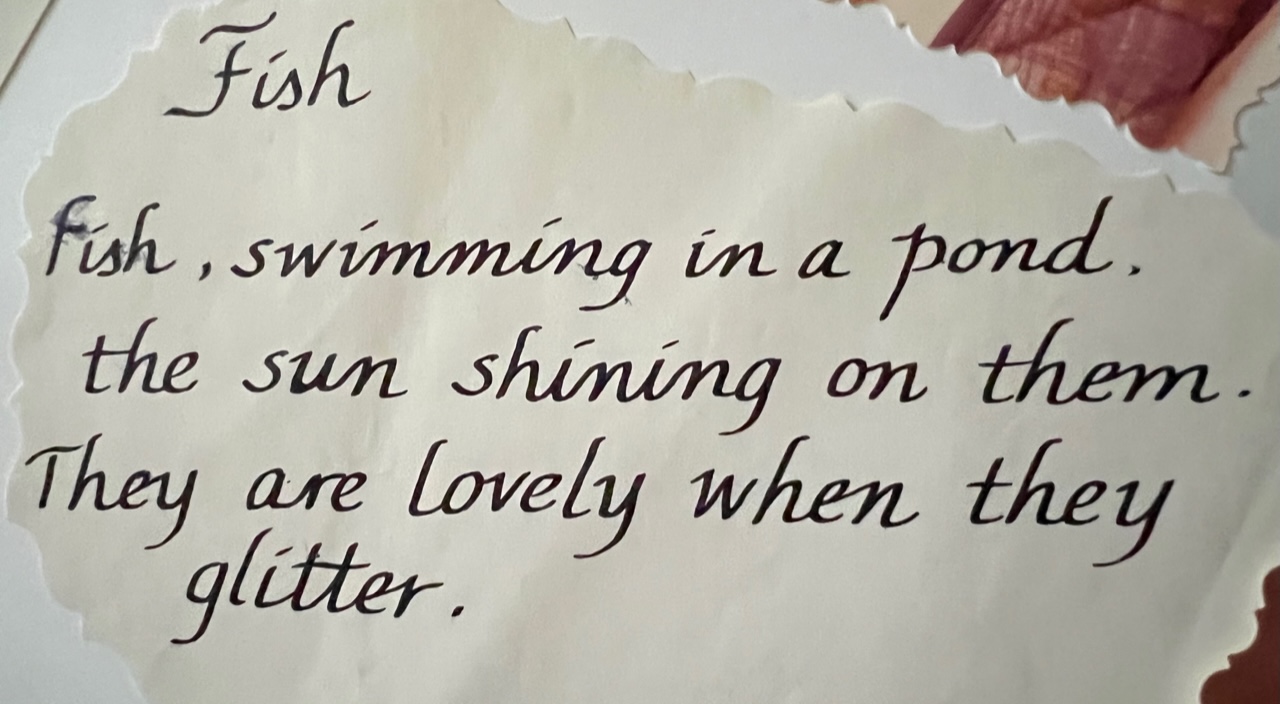 Fish
fish, swimming in a pond.
the sun shining on them.
They are lovely when they
glitter.